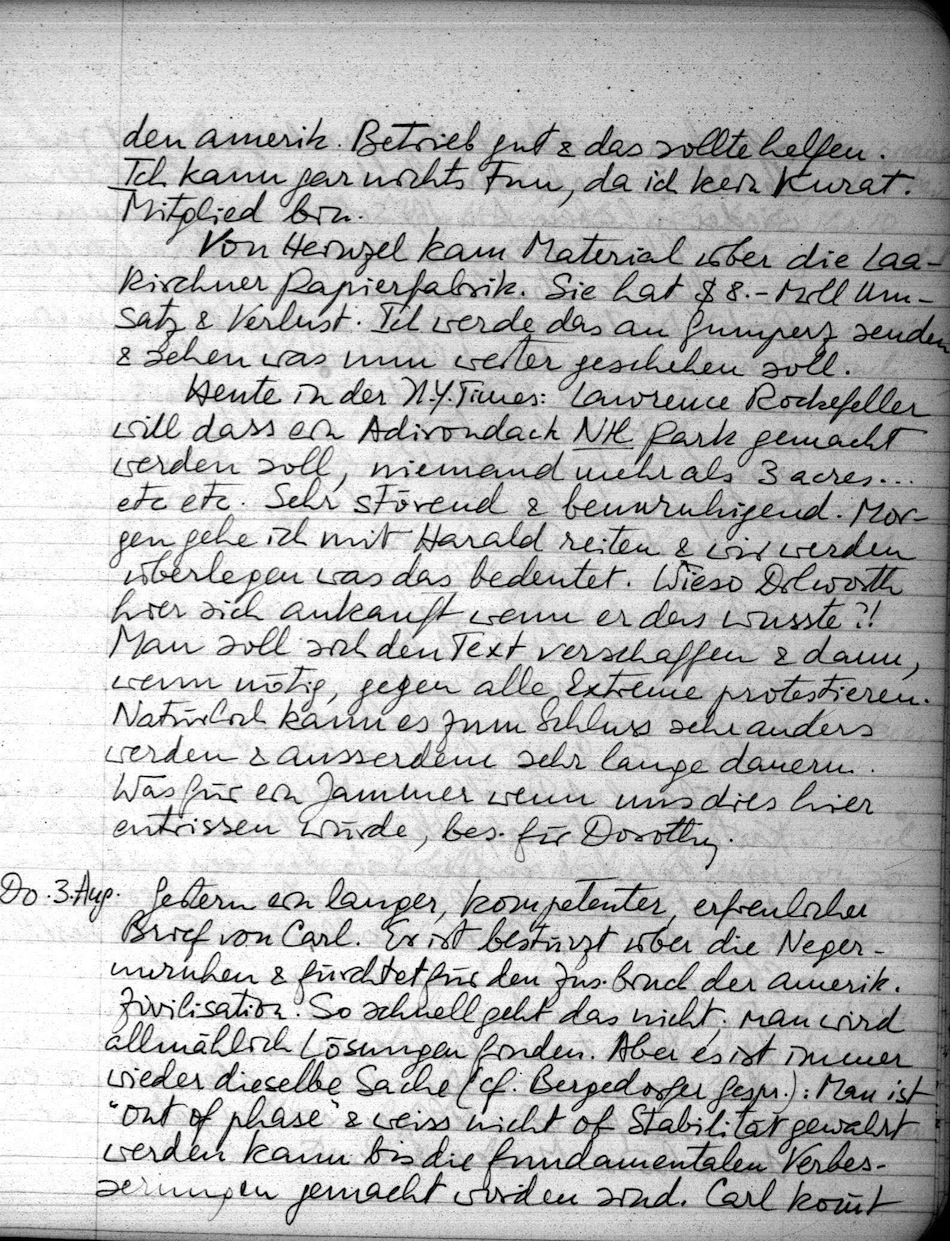 den amerik. Betrieb gut & das sollte helfen.
Ich kann gar nichts tun, da ich kein Kurat.
Mitglied bin.
Von Heinzel kam Material über die Laa-
kirchner Papierfabrik. Sie hat $ 8.- Mill Um-
satz & Verlust. Ich werde das an Gumperz senden
& sehen was nun weiter geschehen soll.
Heute in der N.Y. Times: Lawrence Rockefeller
will dass ein Adirondack Ntl Park gemacht
werden soll, niemand mehr als 3 acres...
etc etc. Sehr störend & beunruhigend. Mor-
gen gehe ich mit Harald reiten & wir werden
überlegen was das bedeutet. Wieso Dilworth
hier sich ankauft wenn er das wusste?!
Man soll sich den Text verschaffen & dann,
wenn nötig, gegen alle Extreme protestieren.
Natürlich kann es zum Schluss sehr anders
werden & ausserdem sehr lange dauern.
Was für ein Jammer wenn uns dies hier
entrissen würde, bes. für Dorothy.
Do. 3. Aug. Gestern ein langer, kompetenter, erfreulicher
Brief von Carl. Er ist bestürzt über die Neger-
unruhen & fürchtet für den Zus.bruch der amerik.
Zivilisation. So schnell geht das nicht. Man wird
allmählich Lösungen finden. Aber es ist immer
wieder dieselbe Sache (cf. Bergedorfer Gespr.): Man ist
"out of phase" & weiss nicht of Stabilität gewahrt
werden kann bis die fundamentalen Verbes-
serungen gemacht worden sind. Carl kom̄t